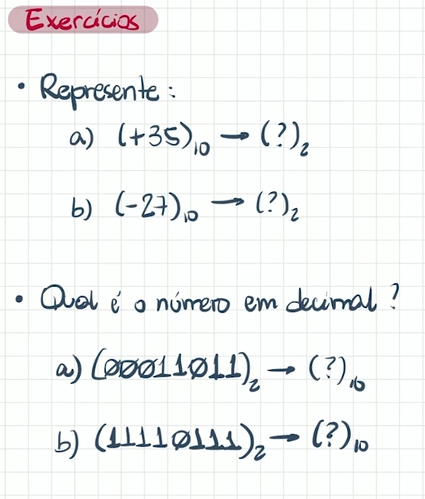 Exercícios
• Represente:
a) (+35)₁₀ → (?)₂
b) (-27)₁₀ → (?)₂
• Qual é o número em decimal?
a) (00011011)₂ → (?)₁₀
b) (11110111)₂ → (?)₁₀